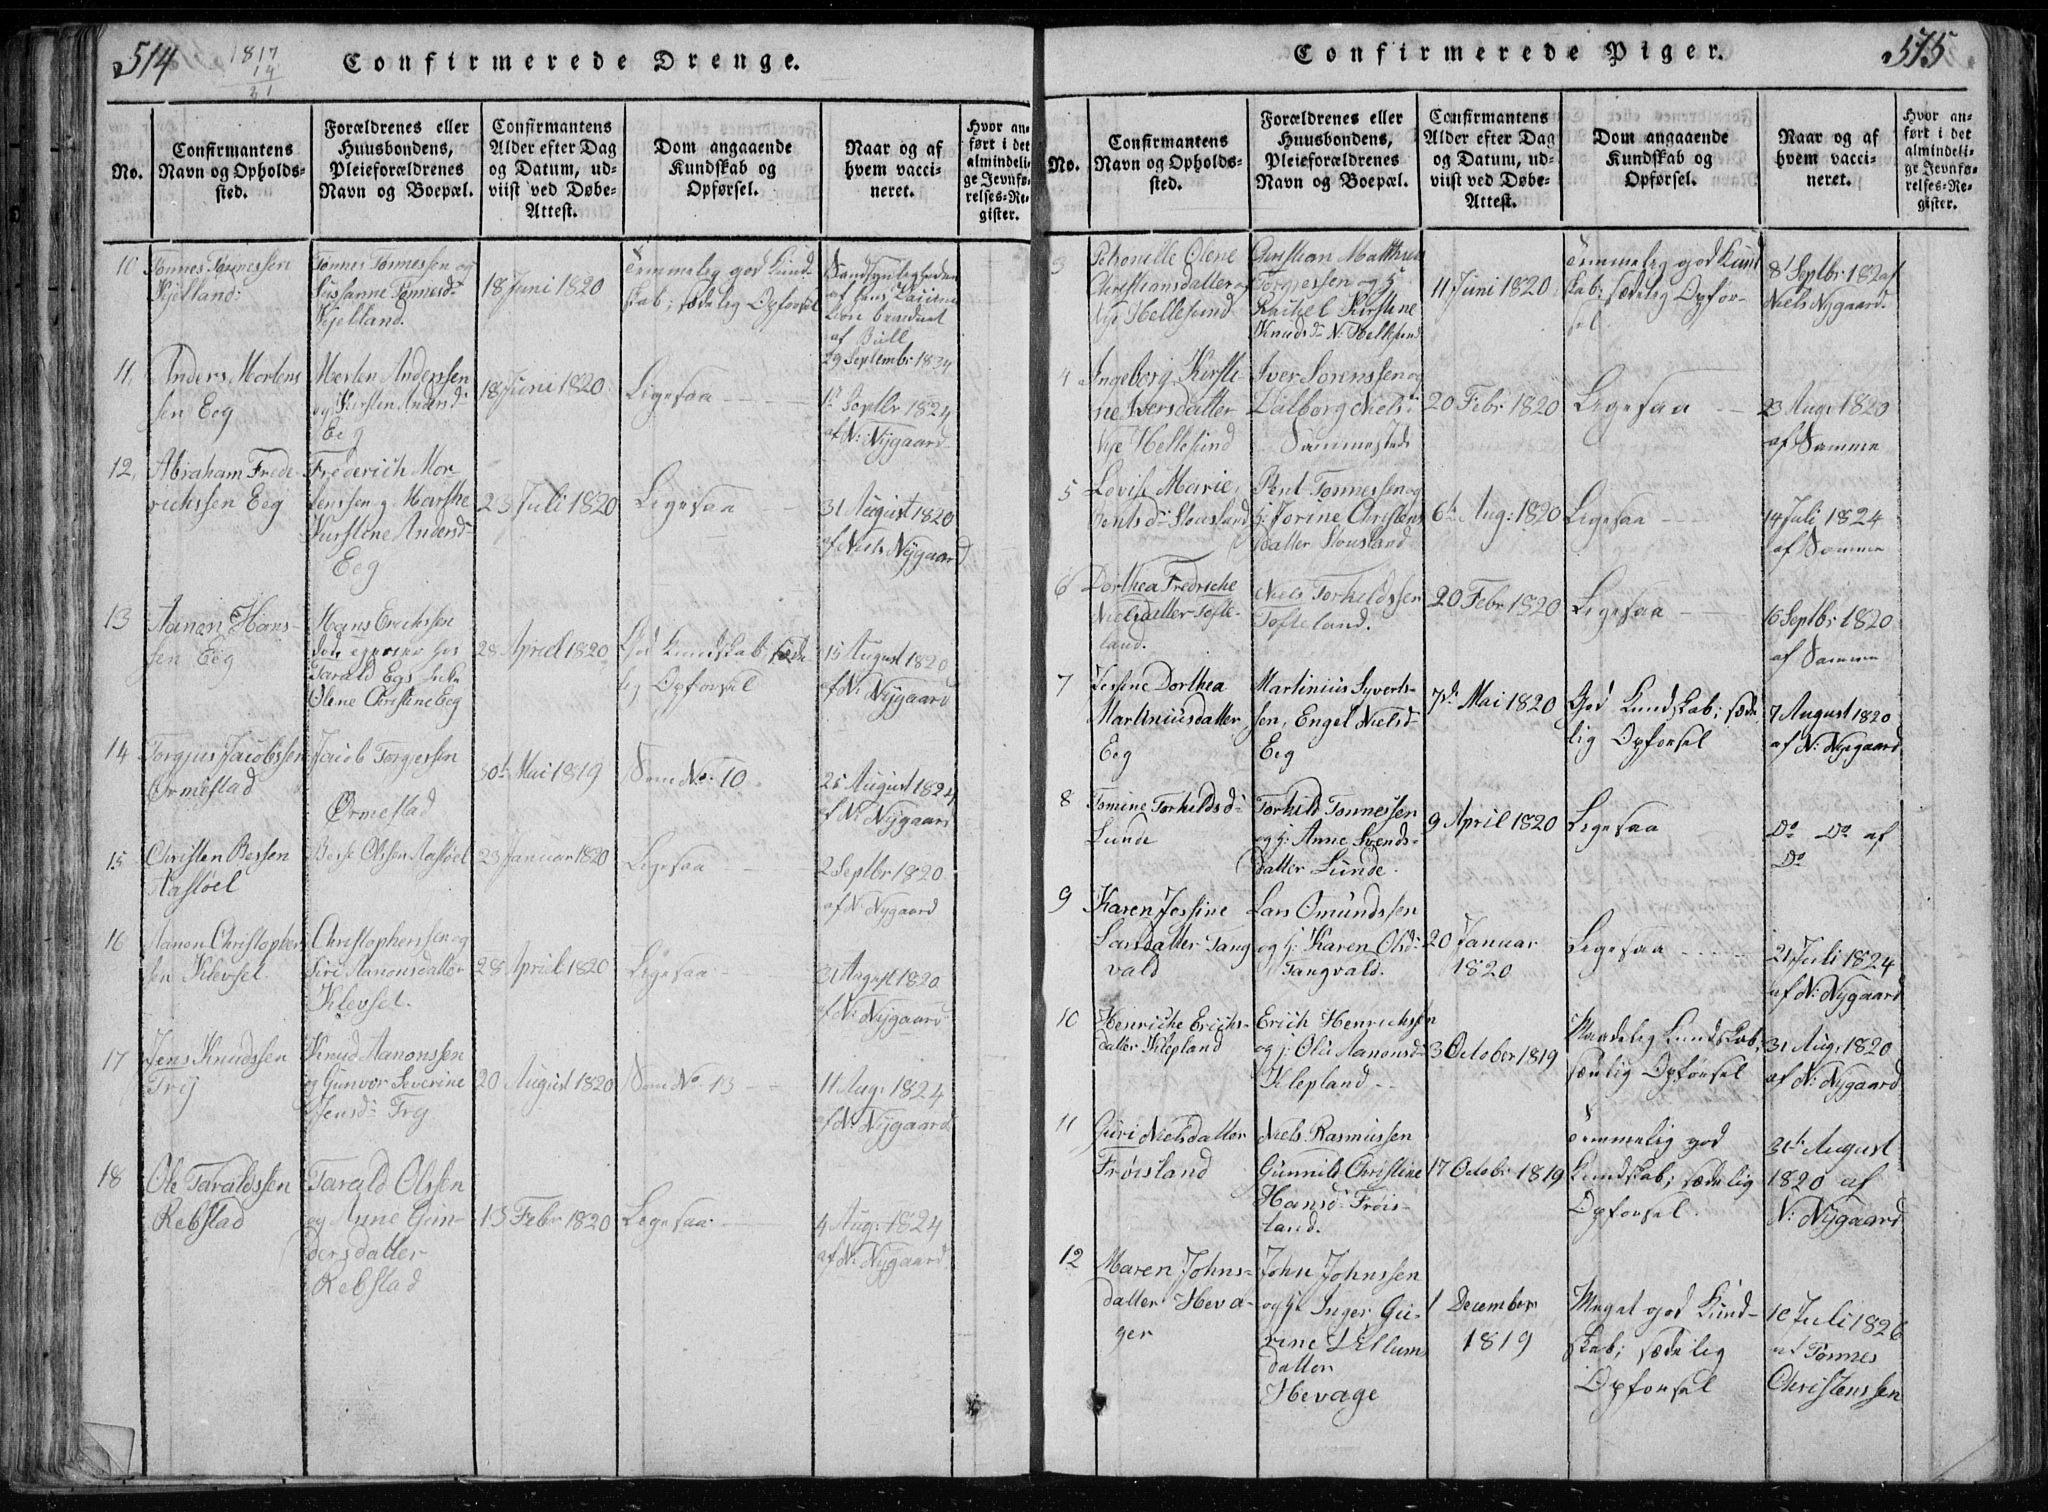 514
1817
14
31
Confirmerede Drenge.
No.
Confirmantens
Navn og Opholds-
sted.
Forældrenes eller
Huusbondens,
Pleieforældrenes
Navn og Boepæl.
Confirmantens
Alder efter Dag
og Datum, ud-
viist ved Døbe-
Attest.
Dom angaaende
Kundskab og
Opførsel.
Naar og af
hvem vacci-
neret.
Hvor an-
ført i det
almindeli-
ge Jevnfø-
relses-Re-
gister.
10
Tønnes Tønnessen
Kjelland:
Tønnes Tønnessen og
Susanne Tønnesd-
Kjelland.
18 Juni 1820
Temmelig god Kund-
skab; sædelig Opførsel
af
af Bull
29 Septembr 1834
11,
Anders Mortens
sen Eeg
Morten Anderssen
og Kirsten Andersd-
Eeg
18 Juni 1820
Ligesaa
1st Septbr 1824
af N: Nÿgaard
12,
Abraham Frede-
richssen Eeg
Frederich Mor
tenssen g. Marthe
Kirstene Andersd-
Eeg
23 Juli 1820
Ligesaa
31 August 1820
af Niels Nÿgaard
13
Aanon Hans-
sen Eeg
Hans Erichssen
Tarald Egs
Olene Christine Eeg
28 April 1820
God Kundskab; sæde
lig Opførsel
15 August 1820
af N: Nÿgaard
14
Torgjus Jacobssen
Ørmestad
Jacob Torgersen
Ørmestad
30te Mai 1819
Som No. 10
25 August 1824
af N: Nÿgaard
15
Christen Bessen
Aasløel
Besse Olssen Aasløel
23 Januar 1820
Ligesaa
2 Septbr 1820
af N: Nÿgaard
16
Aanon Christopher
sen Klevsel.
Christopherssen og
Siri Aanonsdatter
Klevsel.
28 April 1820
Ligesaa
31 August 1820
af N: Nÿgaard
17
Jens Knudssen
Trÿ
Knud Aanonssen
og Gunvor Severine
Jensd- Trÿ
20 August 1820
Som No. 13
11 Aug: 1824
af N: Nÿgaard
18
Ole Taraldssen
Rebstad
Tarald Olssen
og Anne Gun-
dersdatter
Rebstad
13 Febr 1820
Ligesaa
4 Aug: 1824
af N: Nÿgaard
Confirmerede Piger.
515
No.
Confirmantens
Navn og Opholds-
sted.
Forældrenes eller
Huusbondens,
Pleieforældrenes
Navn og Boepæl.
Confirmantens
Alder efter Dag
og Datum, ud-
viist ved Døbe-
Attest.
Dom angaaende
Kundskab og
Opførsel.
Naar og af
hvem vacci-
neret.
Hvor an-
ført i det
almindeli-
ge Jevnfø-
relses-Re-
gister.
3
Petronelle Olene
Christiansdatter
Nye Hellesund
Christian Matthias
Torgersen og H
Rachel Kirstine
Knudsd- N. Hellesund
11 Juni 1820
Temmelig god Kund
skab; sædelig Opfør-
sel
8 Septbr 1820 af
Niels Nygaard.
4
Ingeborg Kirsti-
ne Iversdatter
Nye Hellesund
Iver Sørenssen og
Valborg Niels:
Sammesteds
20 Febr 1820
Ligesaa
23 Aug: 1820
af Samme
5
Lovise Marie,
Bentsd- Slousland
Bent Tønnessen og
H: Jorine Christens
datter Slousland
6te Aug: 1820
Ligesaa
14 Juli 1824
af Samme
6
Dorthea Fredriche
Nielsdatter Tofte-
land.
Niels Torkildssen
Tofteland.
20 Febr 1820
Ligesaa
16 Septbr 1820
af Samme
7
Jessine Dorthea
Martiniusdatter
Eeg
Martinius Syverts-
sen, Engel Nielsd-
Eeg
7de Mai 1820
God Kundskab; sæde
lig Opførsel
7 August 1820
af N: Nygaard
8
Tomine Torkildsd-
Lunde
Torkild Tønnessen
og H: Anne Svends-
datter Lunde.
9 April 1820
Ligesaa
Do Do af
Do
9
Karen Jessine
Larsdatter Tang
vald
Lars Omundssen
og H: Karen Olsd:
Tangvald.
20 Januar
1820
Ligesaa
21 Juli 1824
af N: Nÿgaard
10
Henriche Erichs-
datter Klepland
Erich Henrichssen
og H: Olli Aanonsd-
Klepland
3 October 1819
Maadelig Kundskab,
sædelig Opførsel
31 Aug: 1820
af N: Nÿgaard
11
Guri Nielsdatter
Frøisland
Niels Rasmussen
Gunnild Christine
Hansd- Frøis-
land.
17 Octobr 1819
Temmelig god
Kundskab; sædelig
Opførsel.
31te August
1820 af
N: Nÿgaard
12
Maren Johns-
datter Heva-
ger
John Johnssen
og H: Inger Gu-
rine
datter
Hevage
1 December
1819
Meget god Kund-
skab; sædelig
Opførsel
10 Juli 1826
af Tønnes
Christenssen